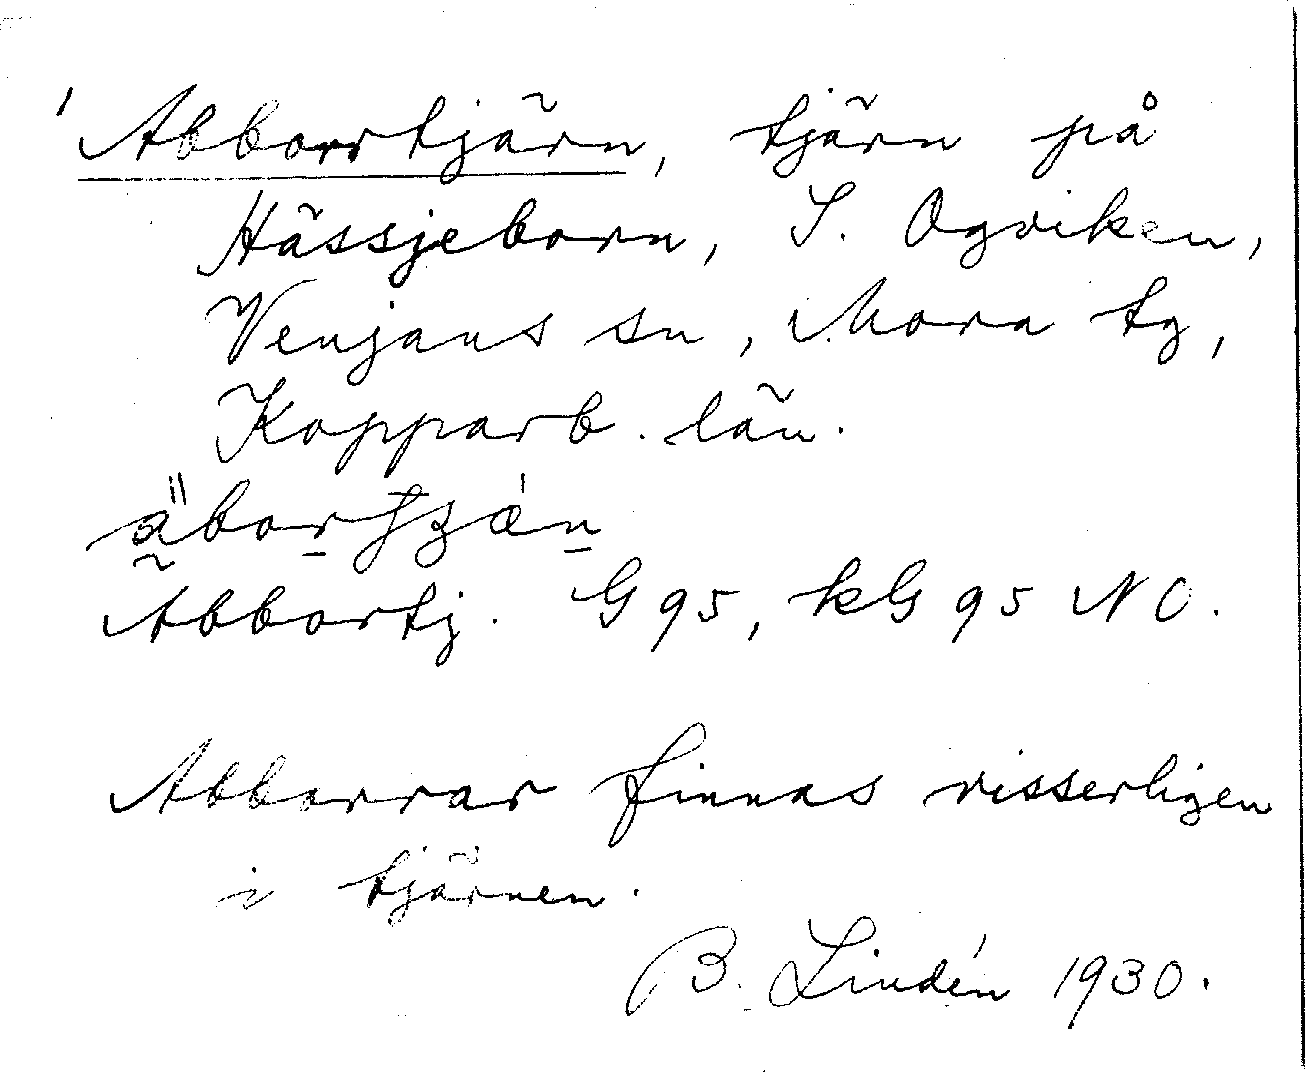 Abborrtjärn, tjärn på
Hässjeborn, S. Ogviken,
Venjans sn, Mora tg,
Kopparb. län.
Abbortj. G 95, kG 95 NO.
Abborrar finnas visserligen
i tjärnen.
B. Lindén 1930.